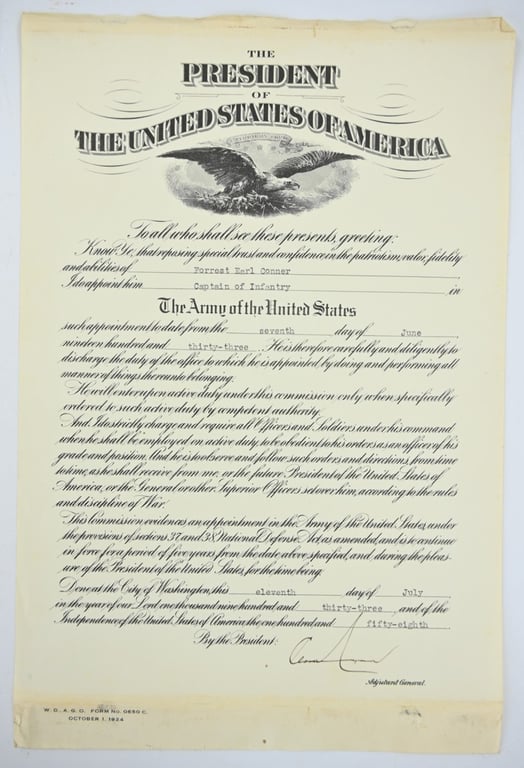 THE
PRESIDENT
OF
THE UNITED STATES OF AMERICA
To all who shall see these presents, greeting:
Know Ye, that reposing special trust and confidence in the patriotism, valor, fidelity
and abilities of Forrest Earl Conner
I do appoint him Captain of Infantry in
The Army of the United States
such appointment to date from the seventh day of June
nineteen hundred and thirty-three. He is therefore carefully and diligently to
discharge the duty of the office to which he is appointed by doing and performing all
manner of things thereunto belonging.
He will enter upon active duty under this commission only when specifically
ordered to such active duty by competent authority.
And I do strictly charge and require all Officers and Soldiers under his command
when he shall be employed on active duty, to be obedient to his orders as an officer of his
grade and position. And he is to observe and follow such orders and directions, from time
to time, as he shall receive from me, or the future President of the United States of
America, or the General or other Superior Officers set over him, according to the rules
and discipline of War.
This Commission evidences an appointment in the Army of the United States, under
the provisions of sections 37 and 38 National Defense Act, as amended, and is to continue
in force for a period of five years from the date above specified, and, during the pleas-
ure of the President of the United States, for the time being.
Done at the City of Washington, this eleventh day of July
in the year of our Lord one thousand nine hundred and thirty-three, and of the
Independence of the United States of America the one hundred and fifty-eighth.
By the President:
Adjutant General.
W. D., A. G. O. FORM No. 0650 C.
OCTOBER 1, 1924